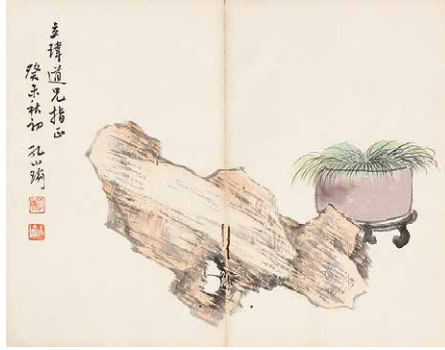 立璋道兄指正
癸未秋初 孔小瑜